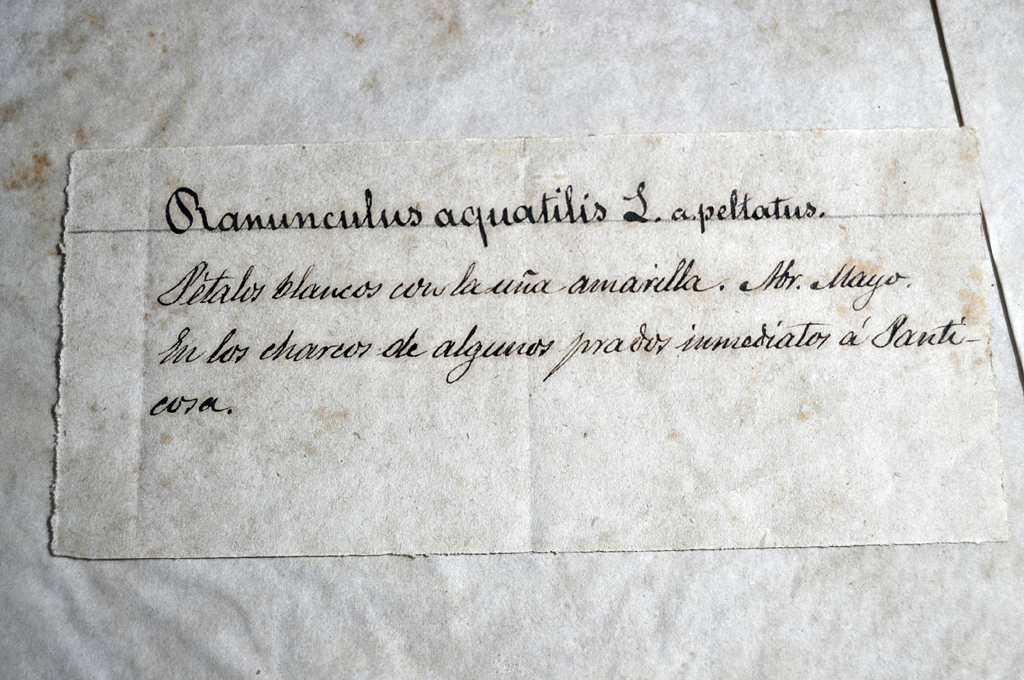 Ranunculus aquatilis L. a. peltatus.
Pétalos blancos con la uña amarilla. Abr. Mayo.
En los charcos de algunos prados inmediatos á Panti-
cosa.